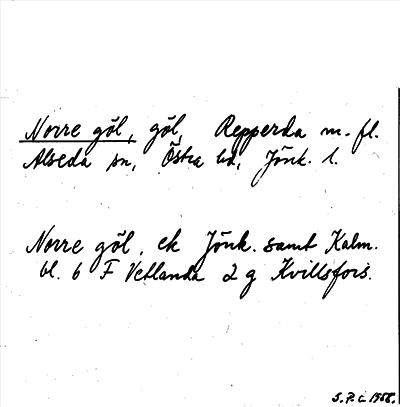 Norre göl, göl, Repperda m. fl.
Alseda sn, Östra hd, Jönk. l.
Norre göl, ek Jönk. samt Kalm.
bl. 6 F Vetlanda 2 g Kvillsfors.
S.P.c 1958.